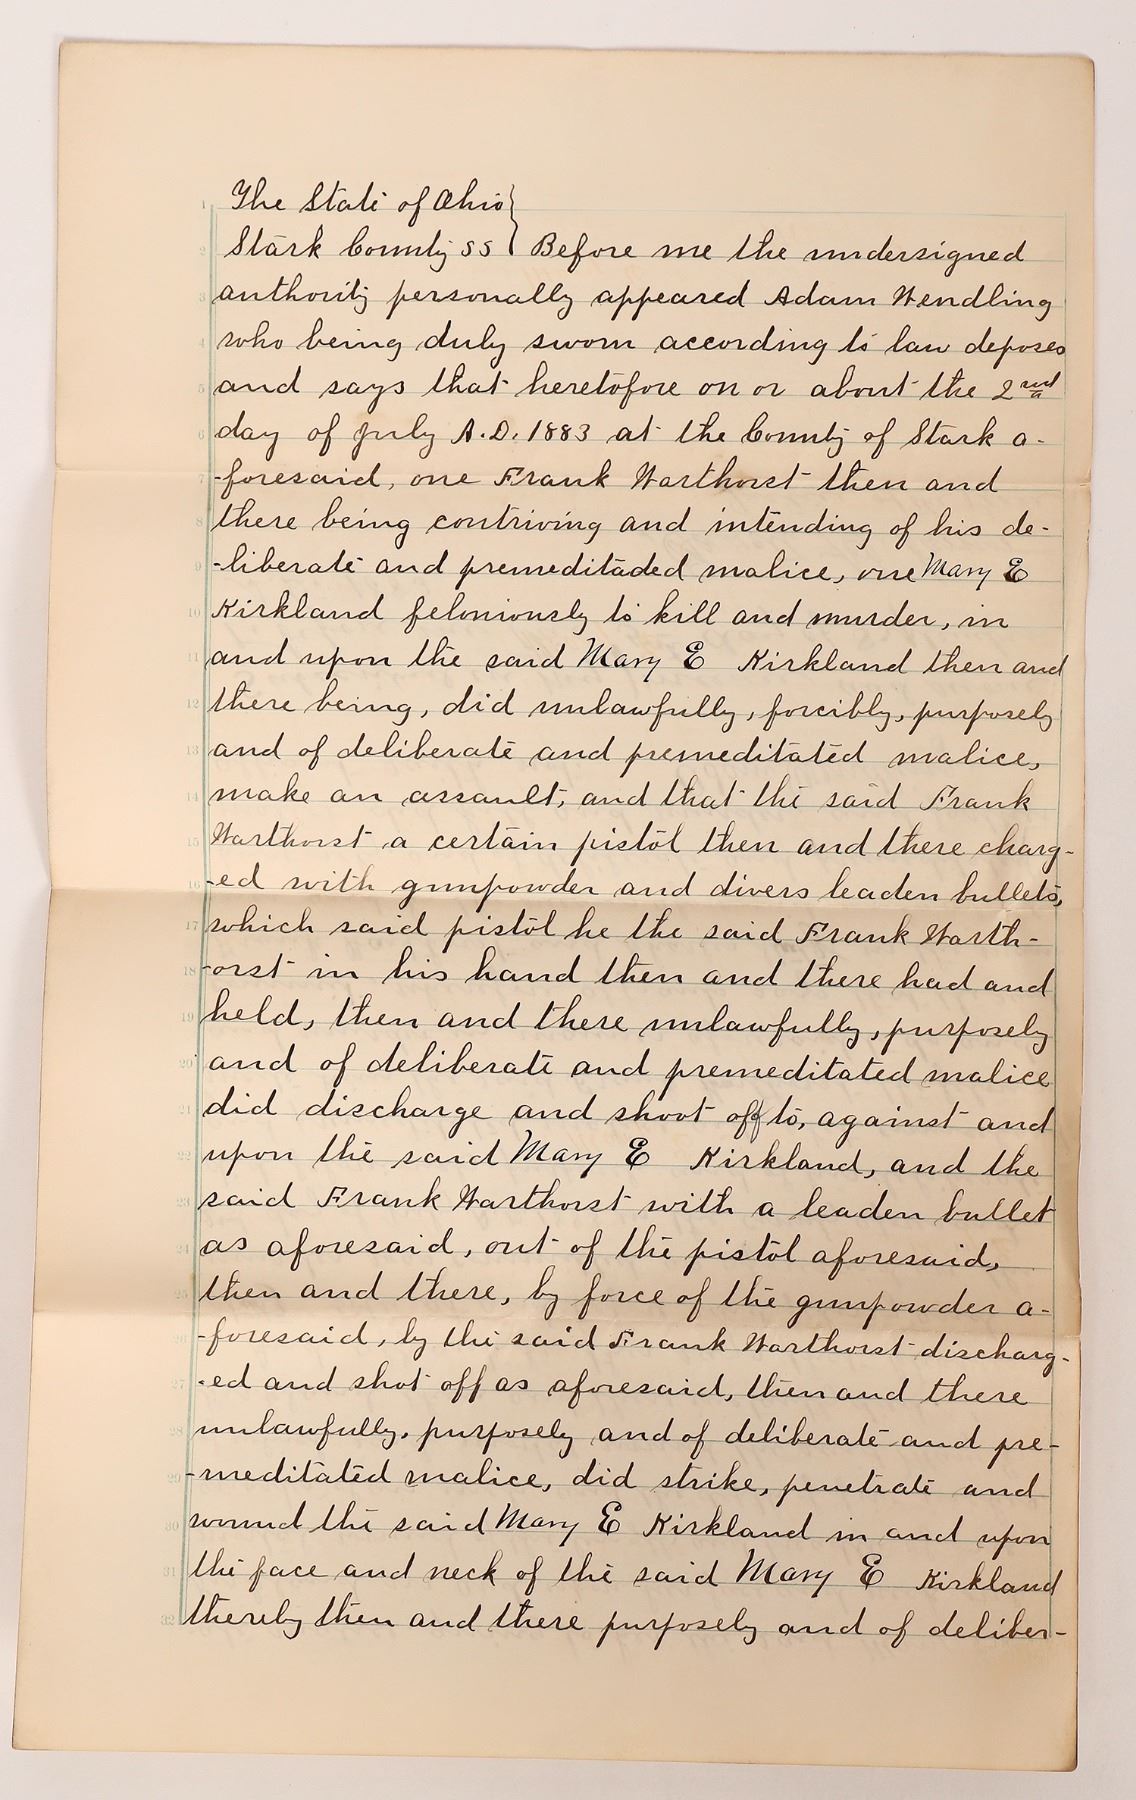 The State of Ohio }
Stark County SS } Before me the undersigned
authority personally appeared Adam Wendling
who being duly sworn according to law deposes
and says that heretofore on or about the 2nd
day of July A.D. 1883 at the County of Stark a-
-foresaid, one Frank Warthorst then and
there being contriving and intending of his de-
-liberate and premeditaded malice, one Mary E
Kirkland feloniously to kill and murder, in
and upon the said Mary E Kirkland then and
there being, did unlawfully, forcibly, purposely
and of deliberate and premeditated malice,
make an assault, and that the said Frank
Warthorst a certain pistol then and there charg-
-ed with gunpowder and divers leaden bullets,
which said pistol he the said Frank Warth-
-orst in his hand then and there had and
held, then and there unlawfully, purposely
and of deliberate and premeditated malice
did discharge and shoot off to, against and
upon the said Mary E Kirkland, and the
said Frank Warthorst with a leaden bullet
as aforesaid, out of the pistol aforesaid,
then and there, by force of the gunpowder a-
-foresaid, by the said Frank Warthorst discharg-
-ed and shot off as aforesaid, then and there
unlawfully, purposely and of deliberate and pre-
-meditated malice, did strike, penetrate and
wound the said Mary E Kirkland in and upon
the face and neck of the said Mary E Kirkland
thereby then and there purposely and of deliber-